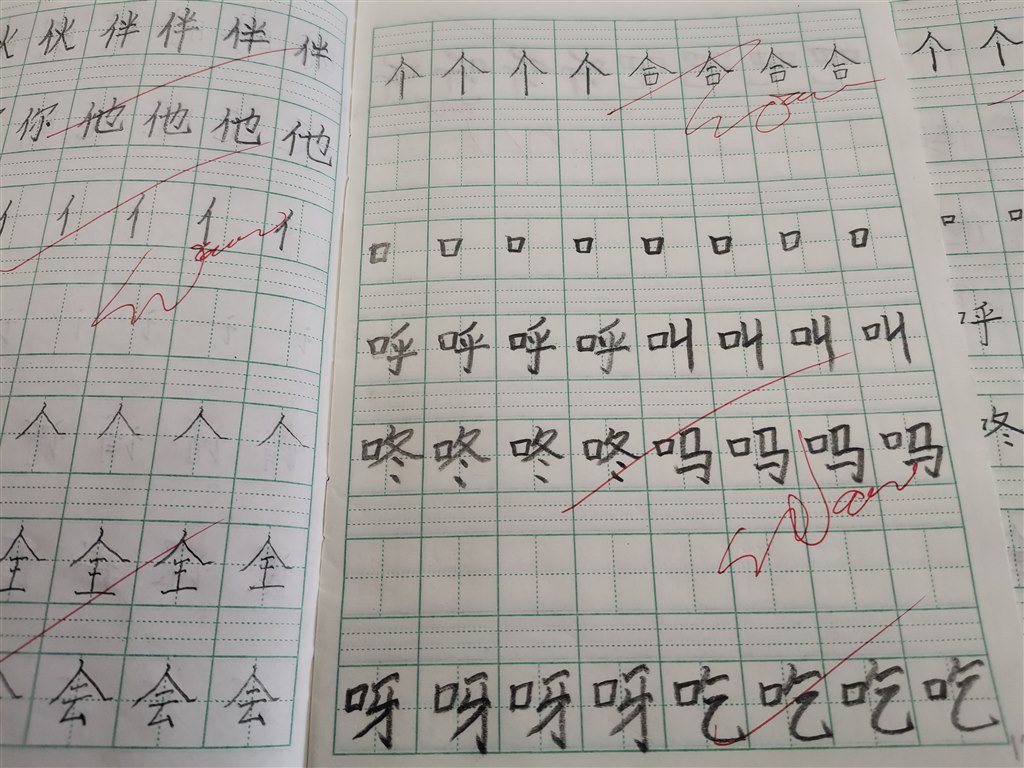 伙 伴 伴 伴 伴
你 他 他 他 他
亻 亻 亻 亻 亻
人 人 人 人
全 全 全 全
会 会 会
个 个 个 个 合 合 合 合
口 口 口 口 口 口 口 口
呼 呼 呼 呼 叫 叫 叫 叫
咚 咚 咚 咚 吗 吗 吗 吗
呀 呀 呀 呀 吃 吃 吃 吃
个 个
口 口
呼
咚